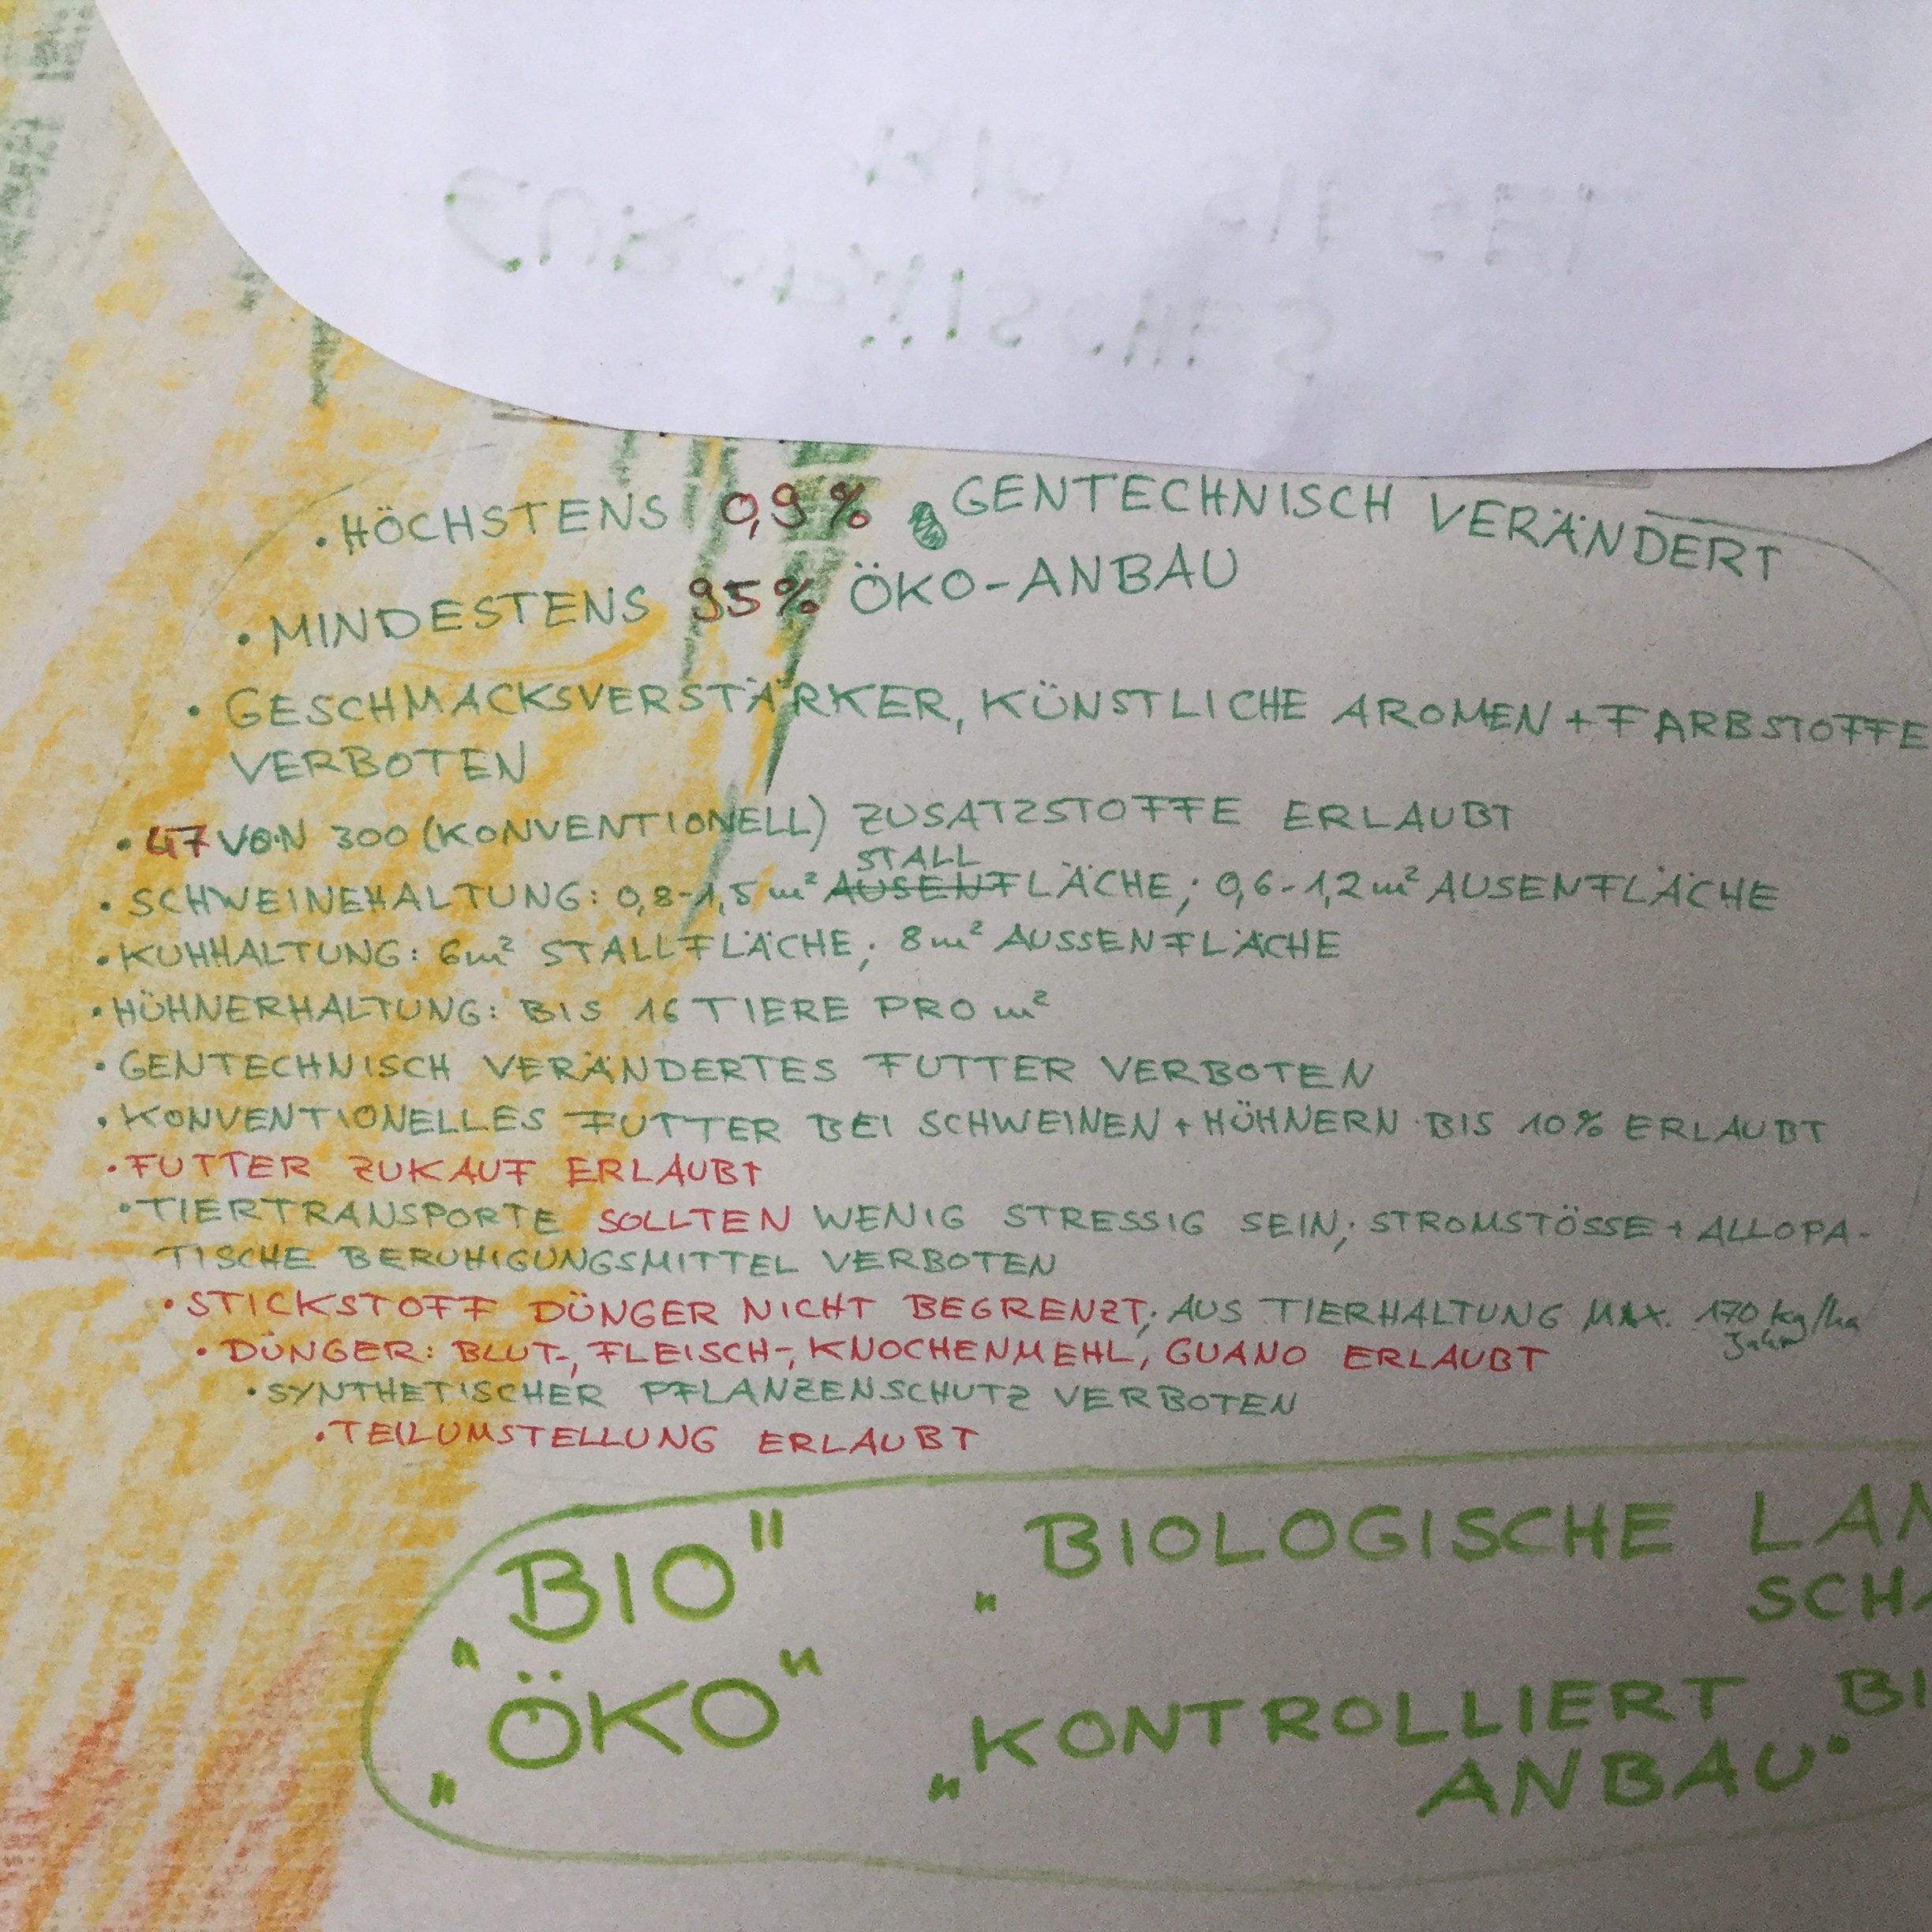 • HÖCHSTENS 0,9% GENTECHNISCH VERÄNDERT
• MINDESTENS 95% ÖKO-ANBAU
• GESCHMACKSVERSTÄRKER, KÜNSTLICHE AROMEN + FARBSTOFFE
VERBOTEN
• 47 VON 300 (KONVENTIONELL) ZUSATZSTOFFE ERLAUBT
• SCHWEINEHALTUNG: 0,8-1,5 m² STALLFLÄCHE; 0,6-1,2 m² AUSENFLÄCHE
• KUHHALTUNG: 6m² STALLFLÄCHE; 8m² AUSSENFLÄCHE
• HÜHNERHALTUNG: BIS 16 TIERE PRO m²
• GENTECHNISCH VERÄNDERTES FUTTER VERBOTEN
• KONVENTIONELLES FUTTER BEI SCHWEINEN + HÜHNERN BIS 10% ERLAUBT
• FUTTER ZUKAUF ERLAUBT
• TIERTRANSPORTE SOLLTEN WENIG STRESSIG SEIN; STROMSTÖSSE + ALLOPA-
TISCHE BERUHIGUNGSMITTEL VERBOTEN
• STICKSTOFF DÜNGER NICHT BEGRENZT; AUS TIERHALTUNG MAX. 170 kg/ha
Jahr
• DÜNGER: BLUT-, FLEISCH-, KNOCHENMEHL, GUANO ERLAUBT
• SYNTHETISCHER PFLANZENSCHUTZ VERBOTEN
• TEILUMSTELLUNG ERLAUBT
„BIO" „BIOLOGISCHE LAN
SCHA
„ÖKO" „KONTROLLIERT BI
ANBAU"